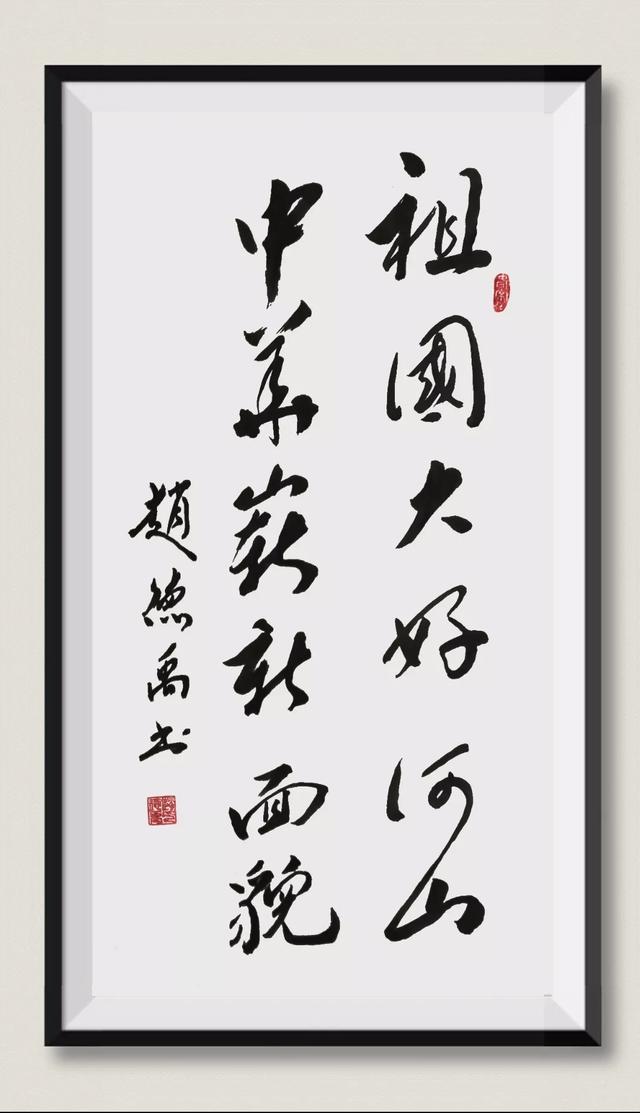 祖國大好河山
中華嶄新面貌
趙德禹书